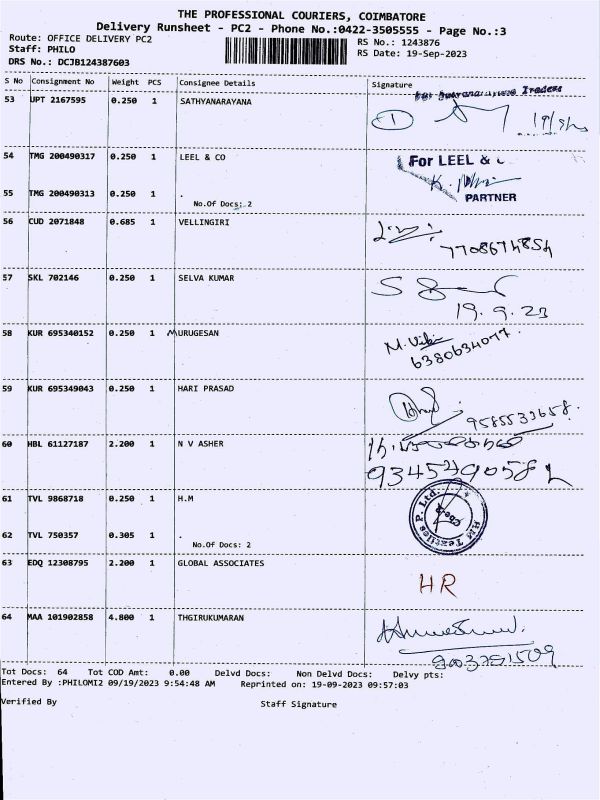 THE PROFESSIONAL COURIERS, COIMBATORE
Delivery Runsheet - PC2 - Phone No.:0422-3505555 - Page No.:3
Route: OFFICE DELIVERY PC2 RS No.: 1243876
Staff: PHILO RS Date: 19-Sep-2023
DRS No.: DCJB124387603
S No Consignment No Weight PCS Consignee Details Signature
53 UPT 2167595 0.250 1 SATHYANARAYANA
1
54 TMG 200490317 0.250 1 LEEL & CO For LEEL &
55 TMG 200490313 0.250 1 .
No.Of Docs: 2 PARTNER
56 CUD 2071848 0.685 1 VELLINGIRI
7708674854
57 SKL 702146 0.250 1 SELVA KUMAR
19.9.23
58 KUR 695340152 0.250 1 MURUGESAN
6380634077
59 KUR 695349043 0.250 1 HARI PRASAD
9585533658
60 HBL 61127187 2.200 1 N V ASHER
61 TVL 9868718 0.250 1 H.M
HM Textiles P. Ltd.
62 TVL 750357 0.305 1 .
No.Of Docs: 2
63 EDQ 12308795 2.200 1 GLOBAL ASSOCIATES
HR
64 MAA 101902858 4.800 1 THGIRUKUMARAN
9003751509
Tot Docs: 64 Tot COD Amt: 0.00 Delvd Docs: Non Delvd Docs: Delvy pts:
Entered By :PHILOMI2 09/19/2023 9:54:48 AM Reprinted on: 19-09-2023 09:57:03
Verified By Staff Signature